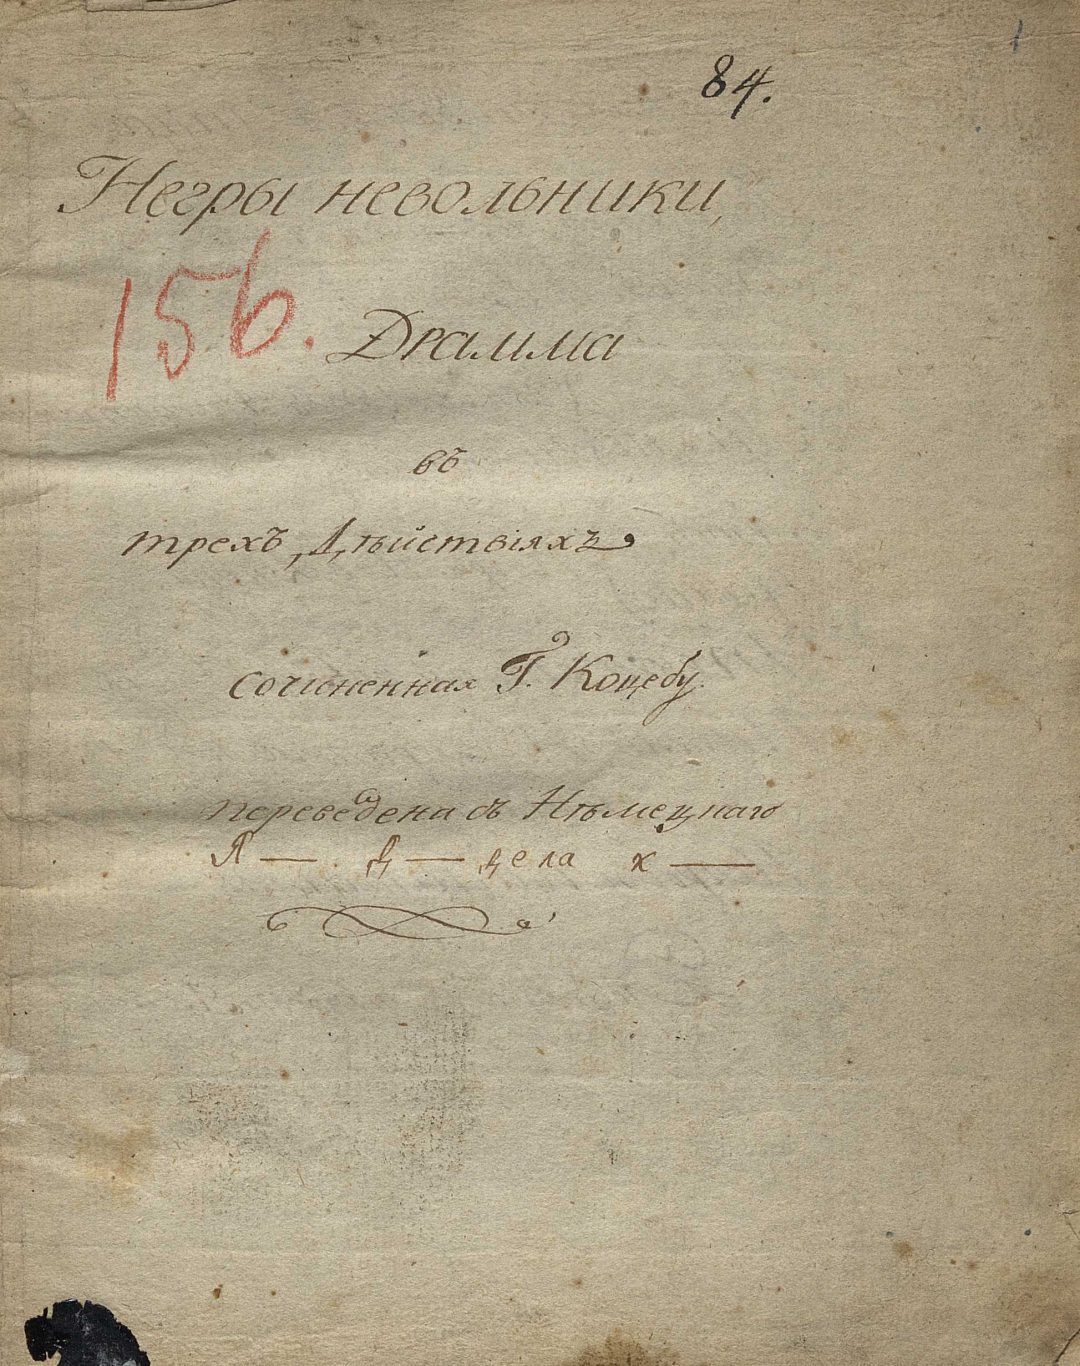 1
84.
Негры невольники,
156.
Драмма
въ
трехъ Дѣйствіяхъ
сочиненная Г. Коцебу.
переведена съ Нѣмецкаго
Я — Д — дела х —